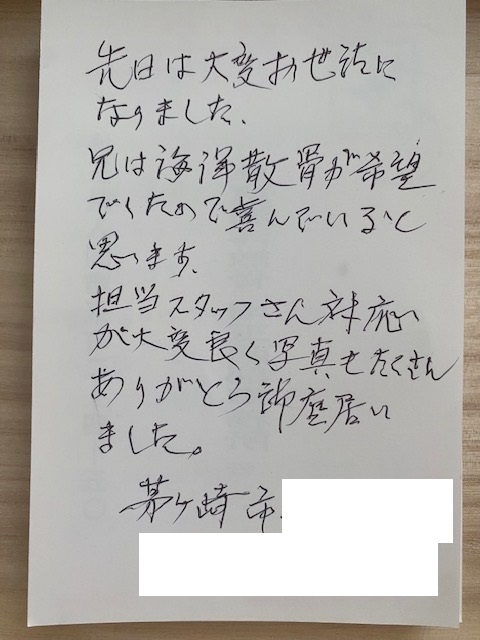 先日は大変お世話に
なりました、
兄は海洋散骨が希望
でしたので喜んでいると
思います、
担当スタッフさん対応
が大変良く写真もたくさん
ありがとう御座居い
ました。
茅ヶ崎市